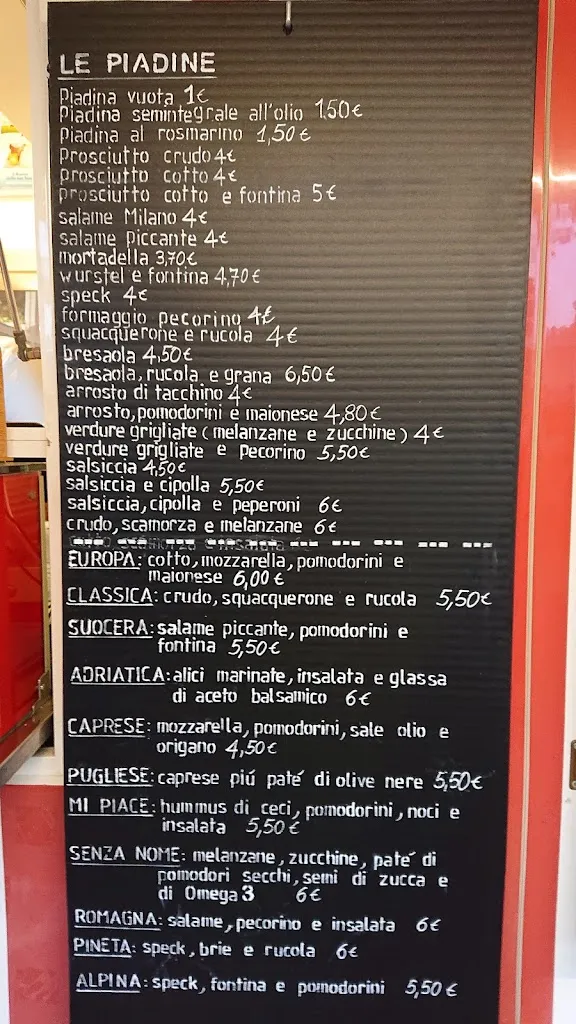 LE PIADINE
Piadina vuota 1€
Piadina semintegrale all'olio 1,50€
Piadina al rosmarino 1,50€
prosciutto crudo 4€
prosciutto cotto 4€
prosciutto cotto e fontina 5€
salame Milano 4€
salame piccante 4€
mortadella 3,70€
wurstel e fontina 4,70€
speck 4€
formaggio pecorino 4€
squacquerone e rucola 4€
bresaola 4,50€
bresaola, rucola e grana 6,50€
arrosto di tacchino 4€
arrosto, pomodorini e maionese 4,80€
verdure grigliate (melanzane e zucchine) 4€
verdure grigliate e pecorino 5,50€
salsiccia 4,50€
salsiccia e cipolla 5,50€
salsiccia, cipolla e peperoni 6€
crudo, scamorza e melanzane 6€
EUROPA: cotto, mozzarella, pomodorini e
maionese 6,00€
CLASSICA: crudo, squacquerone e rucola 5,50€
SUOCERA: salame piccante, pomodorini e
fontina 5,50€
ADRIATICA: alici marinate, insalata e glassa
di aceto balsamico 6€
CAPRESE: mozzarella, pomodorini, sale olio e
origano 4,50€
PUGLIESE: caprese piú paté di olive nere 5,50€
MI PIACE: hummus di ceci, pomodorini, noci e
insalata 5,50€
SENZA NOME: melanzane, zucchine, paté di
pomodori secchi, semi di zucca e
di Omega 3 6€
ROMAGNA: salame, pecorino e insalata 6€
PINETA: speck, brie e rucola 6€
ALPINA: speck, fontina e pomodorini 5,50€